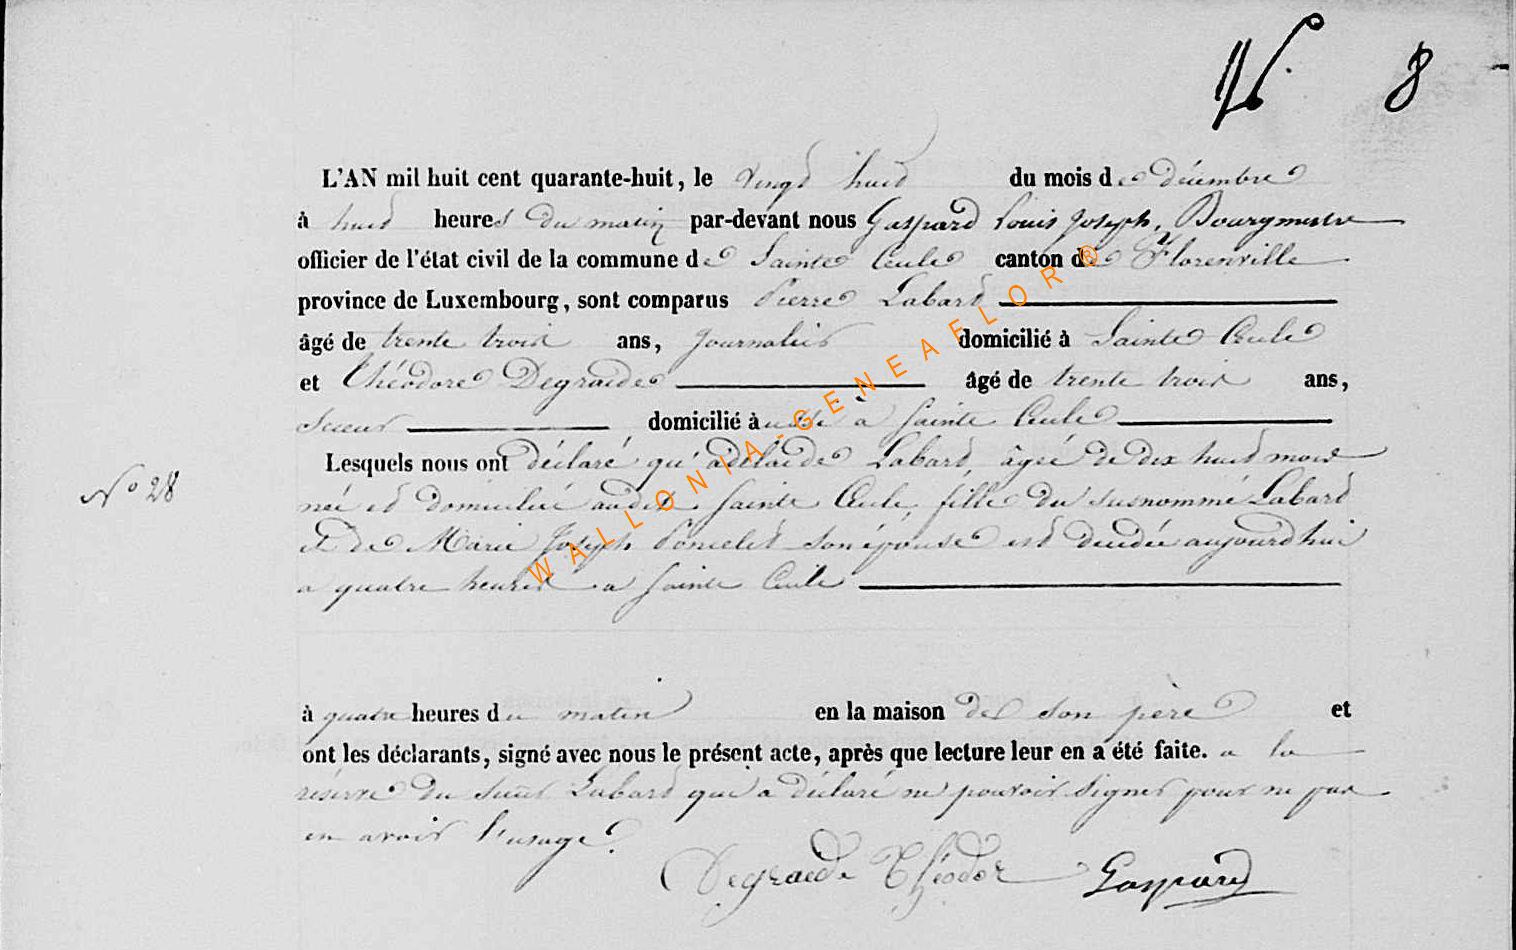 8
L'AN mil huit cent quarante-huit, le vingt huit du mois de décembre
à huit heures du matin par-devant nous Gaspard Louis Joseph, Bourgmestre
officier de l'état civil de la commune de Sainte Cecile canton de Florenville
province de Luxembourg, sont comparus Pierre Labard
âgé de trente trois ans, journalier domicilié à Sainte Cecile
et Théodore Degraide âgé de trente trois ans,
scieur domicilié à aussi à Sainte Cecile
Lesquels nous ont déclaré qu'adelaide Labard, âgée de dix huit mois
N° 28
née et domiciliée audit Sainte Cecile, fille du susnommé Labard
et de Marie Joseph Poncelet son épouse est décédée aujourd'hui
a quatre heures a Sainte Cecile
à quatre heures du matin en la maison de son père et
ont les déclarants, signé avec nous le présent acte, après que lecture leur en a été faite. a la
réserve du sieur Labard qui a déclaré ne pouvoir signer pour ne pas
en avoir l'usage.
Degraide Théodor Gaspard
WALLONIA-GENEAFLOR®